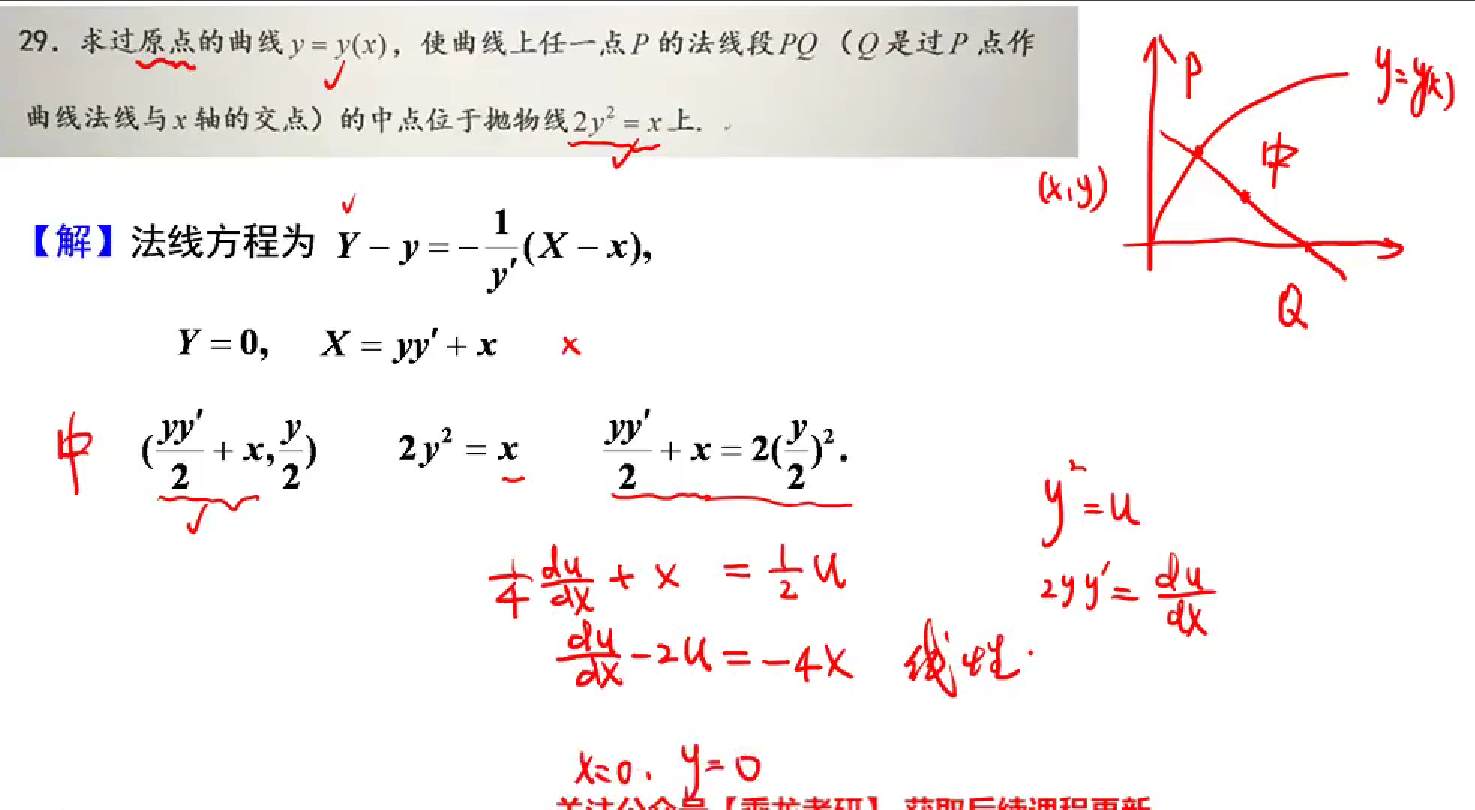 29. 求过原点的曲线 y = y(x)，使曲线上任一点 P 的法线段 PQ（Q 是过 P 点作
曲线法线与 x 轴的交点）的中点位于抛物线 2y² = x 上.
P
y=y(x)
中
(x,y)
Q
【解】法线方程为 Y − y = −1/y′ (X − x),
Y = 0, X = yy′ + x ×
中 (yy′/2 + x, y/2) 2y² = x yy′/2 + x = 2(y/2)².
y²=u
1/4 du/dx + x = 1/2 u
2yy′= du/dx
du/dx −2u = −4x 线性.
x=0, y=0
关注公众号【乘龙考研】 获取后续课程更新